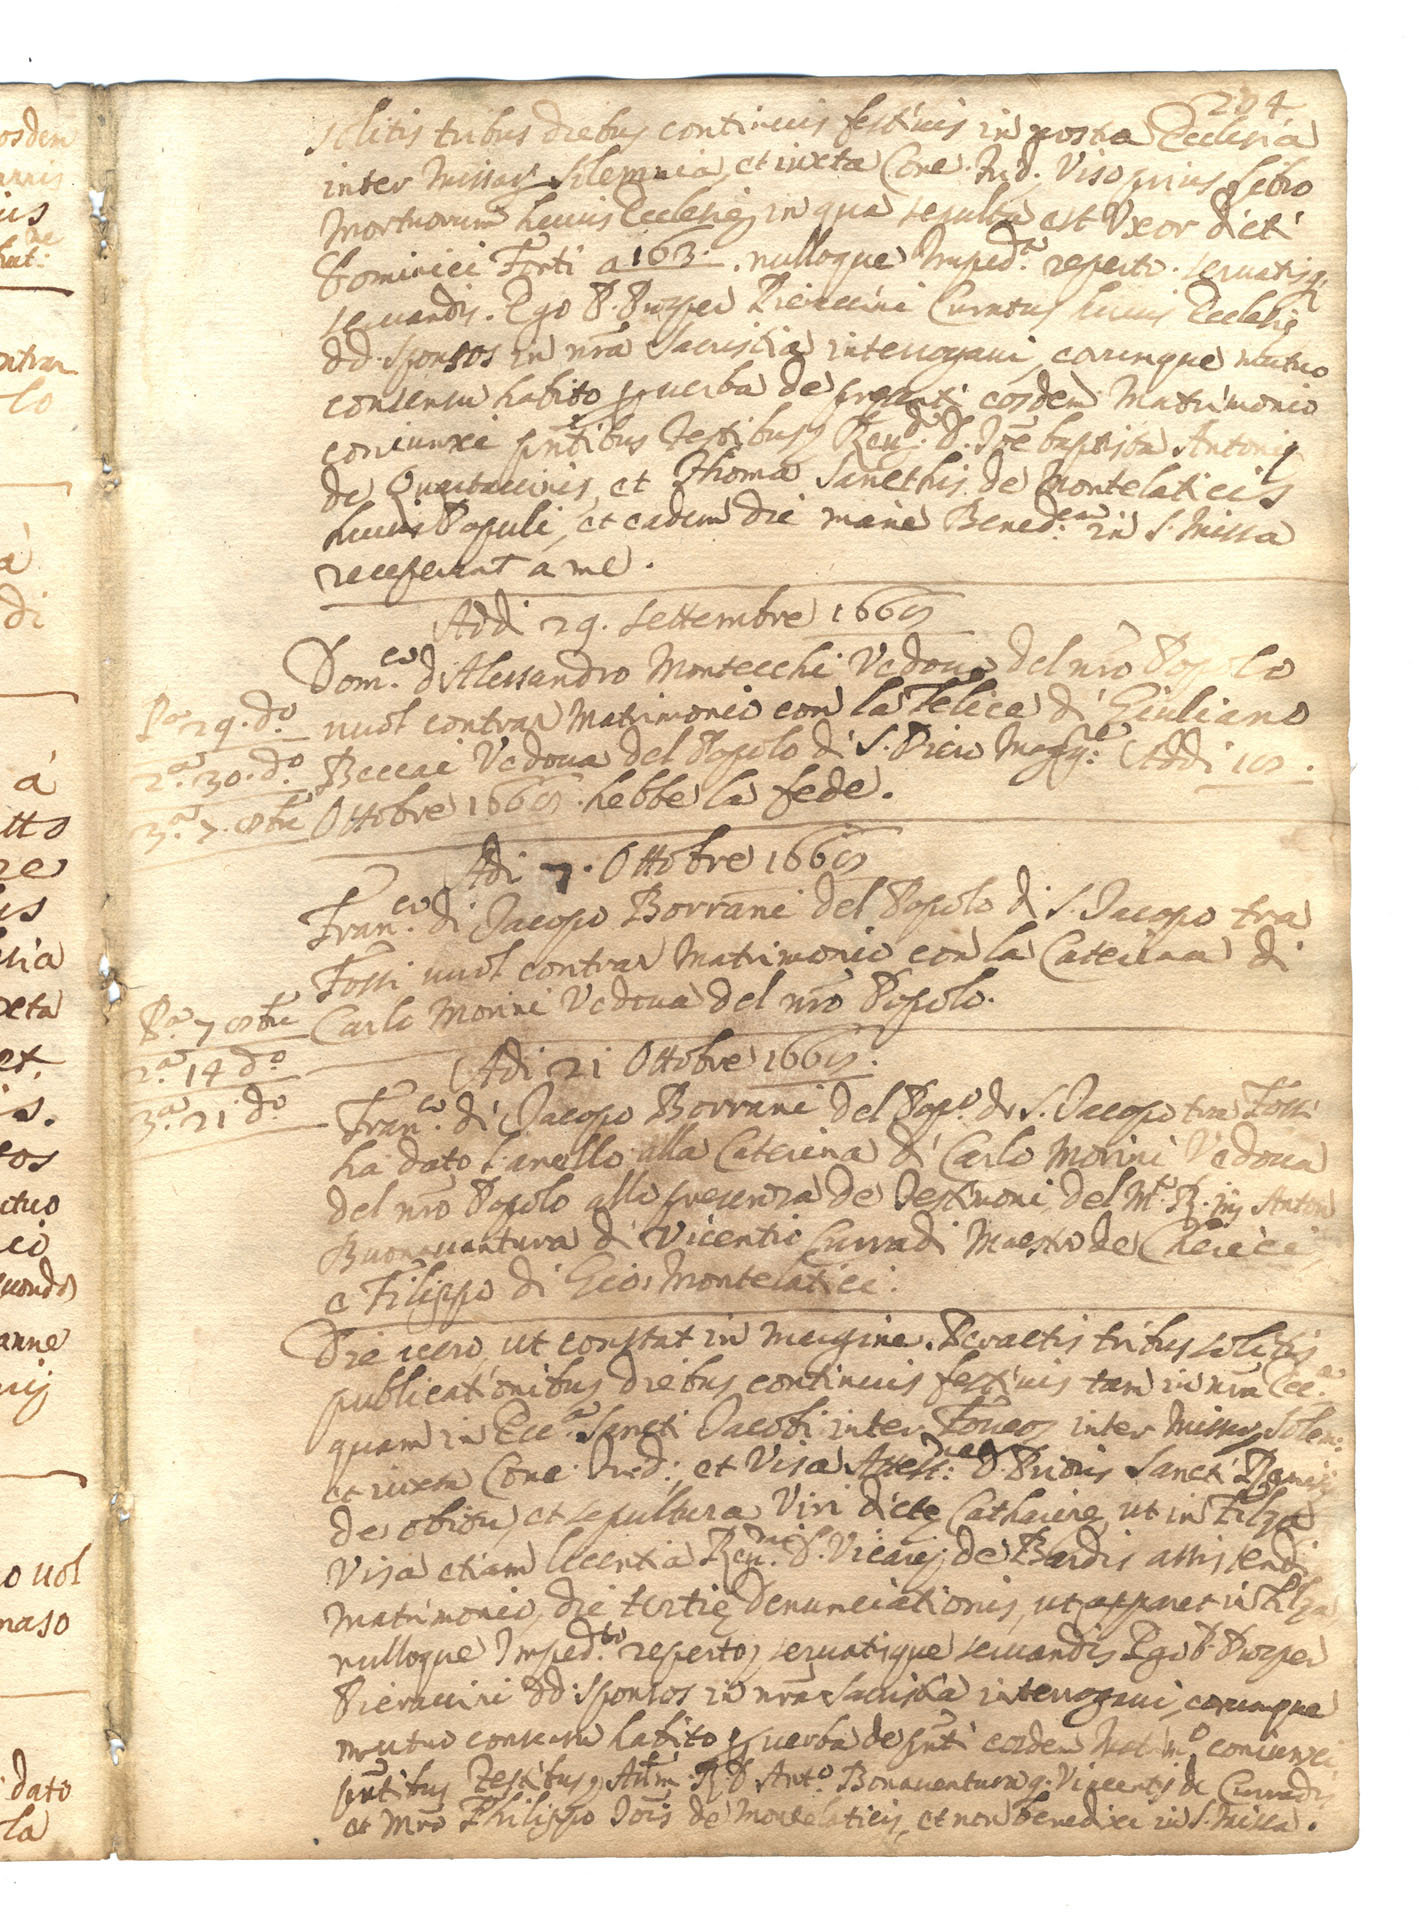 204
solitis tribus diebus continuis festiuis in nostra Ecclesia
inter Missaɤ solemnia, et iuxta Conc. Trid. Viso prius libro
Mortuorum huius Ecclesię in qua sepulta est Vxor dicti
Dominici Forti a 163. nulloque Imped.º reperto. seruatisq
seruandis. Ego P. Prosper Pieraccini Curatus huius Ecclesię
dd. sponsos in nrã Sacristia interrogaui, eorumque mutuo
consensu habito p uerba de presenti eosdem Matrimonio
coniunxi pñtibus Testibus Reu.do D. Joẽ baptista Antonij
de Guataccinis, et Thoma Sancthis de Montelaticis
huius Populi, et eadem die mane Bened.em in S. Missa
receperunt a me.
Addi 29. settembre 1669
Dom.co di Alessandro Montecchi Vedouo del nrõ Popolo
Pa 29. do uuol contrar Matrimonio con la Felice di Giuliano
2.a 30. do Beccai Vedoua del Popolo di S. Pier Magg.re Addi 10.
3.a 7. 8bre Ottobre 1669 hebbe la fede.
Adi 7. Ottobre 1669
Fran.co di Jacopo Borrani del Popolo di S. Jacopo tra
Fossi uuol contrar Matrimonio con la Caterina di
P.a 7 8bre Carlo Morini Vedoua del nrõ Popolo.
2.a 14 do Adi 21 Ottobre 1669.
3.a 21 do Fran.co di Jacopo Borrani del Pop.o di S. Jacopo tra Fossi
ha dato l'anello alla Caterina di Carlo Morini Vedoua
del nrõ Popolo alla presenza de Testimoni, del M.to R. Anton
Buonauentura di Vicentio Curradi Maestro de Cherici,
e Filippo di Gio: Montelatici.
Die uero, ut constat in margine. Peractis tribus solitis
publicationibus diebus continuis festiuis tam in nrã Ecc.a
quam in Ecc.a Sancti Jacobi inter Foueos inter Missaɤ Solem:
et iuxta Conc. Trid:, et Visa Attest: D. Prioris Sancti Remigij
de obitu, et sepultura Viri dictę Catharinę, ut in Filza
Visa etiam licentia Reu.mi D. Vicarij de Bardis assistendi
Matrimonio, die tertię Denunciationis, ut apparet in Filza,
nulloque Imped.to reperto, seruatisque seruandis Ego P. Prosper
Pieraccini dd. sponsos in nrã Sacristia interrogaui, eorumque
mutuo consensu habito p uerba de pñti eosdem Mat.mo coniunxi,
pñtibus Testibus, R. D. Ant.o Bonauentura q. Vincentij de Curradis
et Mrõ Philippo Joĩs de Montelaticis, et non benedixi in S. Missa.